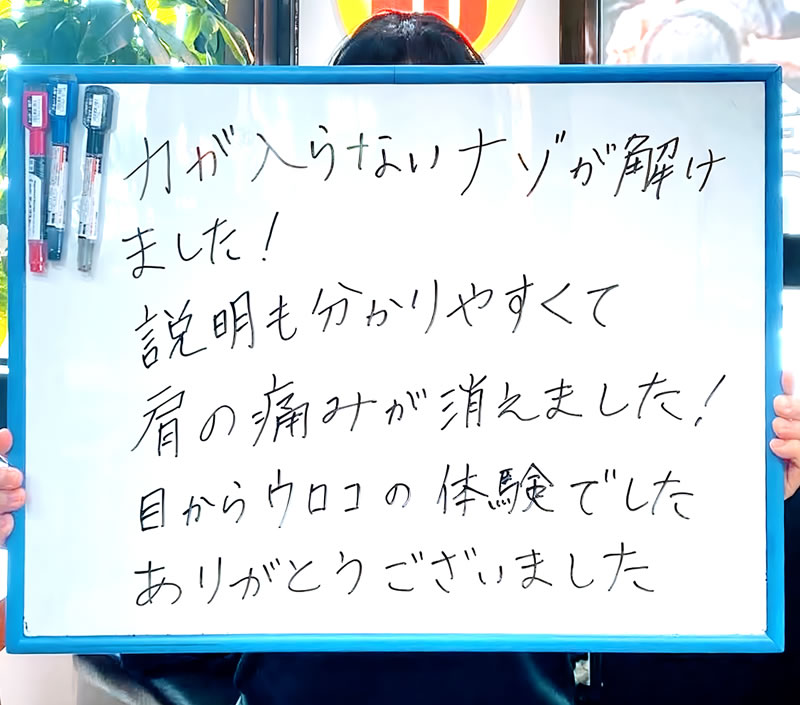 力が入らないナゾが解け
ました!
説明も分かりやすくて
肩の痛みが消えました!
目からウロコの体験でした
ありがとうございました